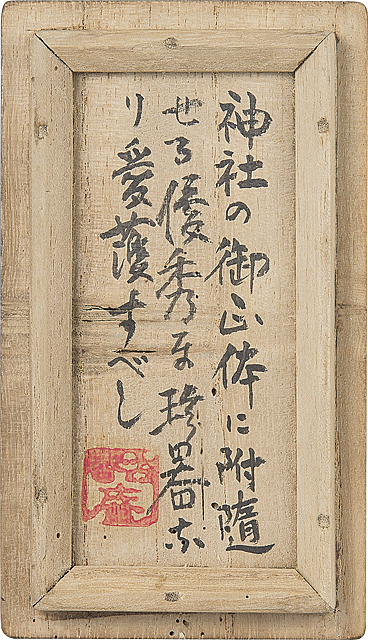 神社の御正体に附隨
せる優秀な珍器な
り愛護すべし